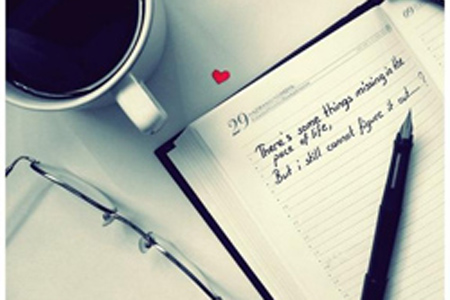 29
09
There's some things missing in the
pace of life,
But i still cannot figure it out....?